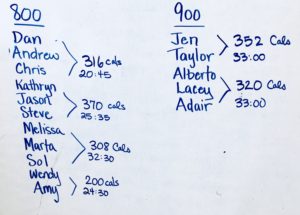 800
Dan
Andrew
Chris
316 cals
20:45
Kathryn
Jason
Steve
370 cals
25:35
Melissa
Marta
Sol
308 Cals
32:30
Wendy
Amy
200 cals
24:30
900
Jen
Taylor
352 Cals
33:00
Alberto
Lacey
Adair
320 Cals
33:00